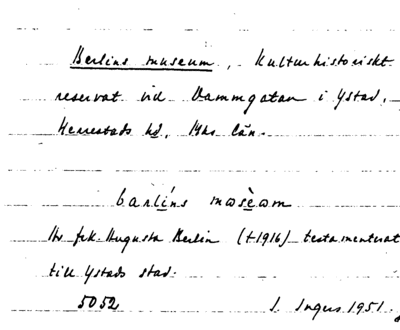 Berlins museum, Kulturhistoriskt
reservat vid Dammgatan i Ystad,
Herrestads hd, Mhs län.
barlíns mɷsèɷm
Av frk. Augusta Berlin (†1916) testamenterat
till Ystads stad.
5052 I. Ingers 1951.